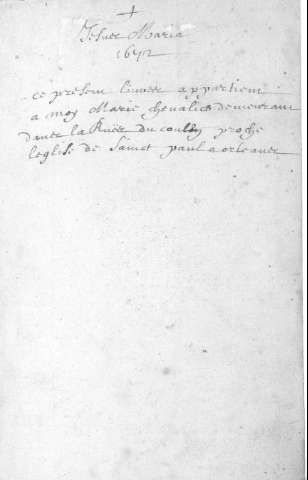 +
Jesus Maria
1672
ce présent livere appartient
a moy Marie chevalier demeurant
dans la Ruë du proche
leglise de Sainct paul a orleans